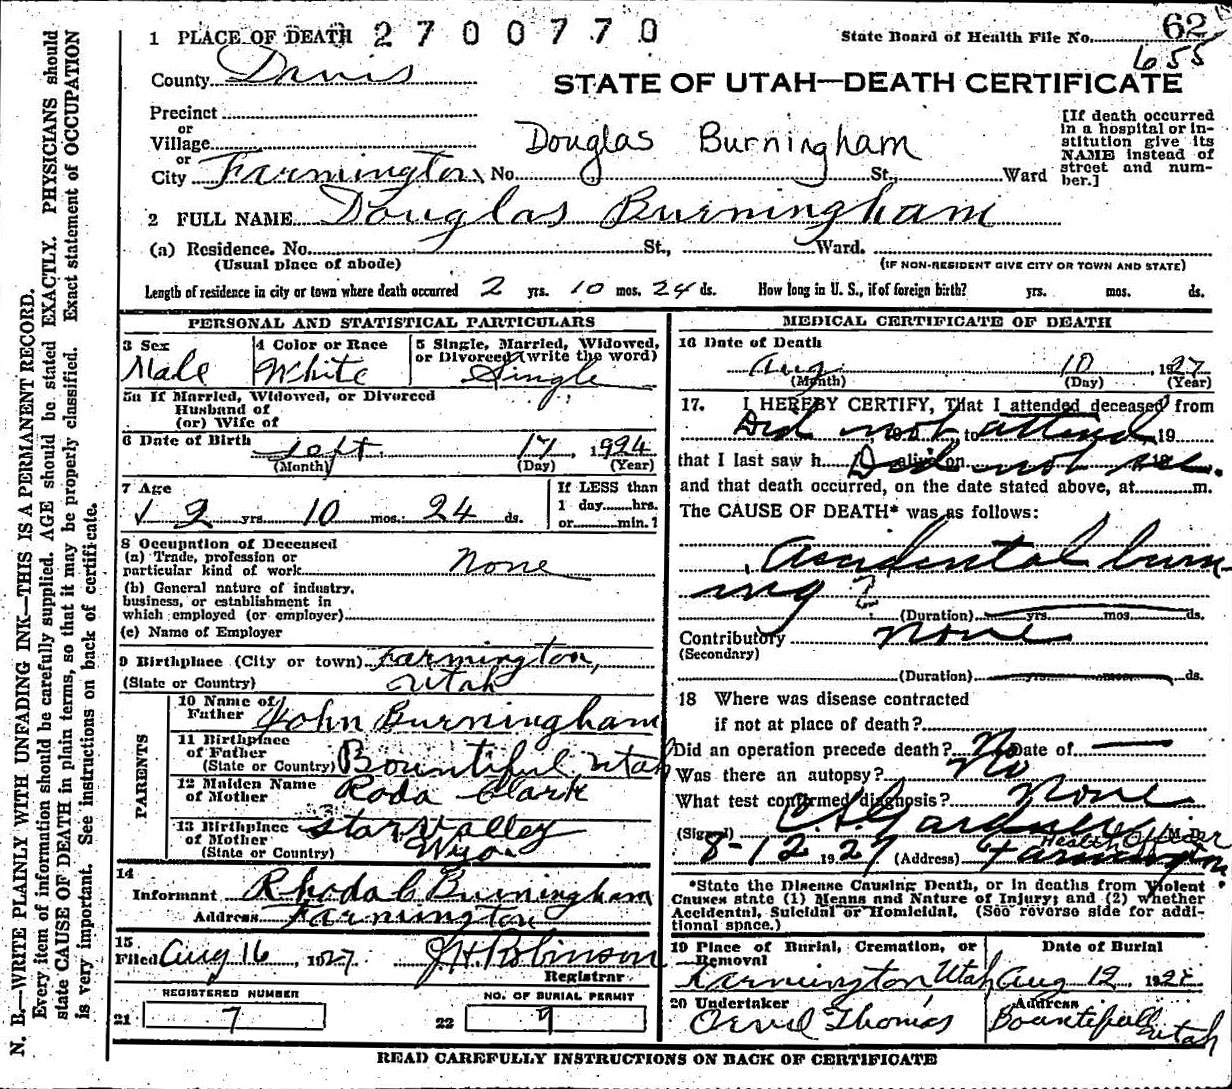 N. B.—WRITE PLAINLY WITH UNFADING INK—THIS IS A PERMANENT RECORD.
Every item of information should be carefully supplied. AGE should be stated EXACTLY. PHYSICIANS should
state CAUSE OF DEATH in plain terms, so that it may be properly classified. Exact statement of OCCUPATION
is very important. See instructions on back of certificate.
1 PLACE OF DEATH 2700770
State Board of Health File No. 62
655
County Davis
STATE OF UTAH—DEATH CERTIFICATE
Precinct
or
Village
or
City Farmington No. St., Ward
Douglas Burningham
[If death occurred
in a hospital or in-
stitution give its
NAME instead of
street and num-
ber.]
2 FULL NAME Douglas Burningham
(a) Residence. No. St., Ward.
(Usual place of abode) (IF NON-RESIDENT GIVE CITY OR TOWN AND STATE)
Length of residence in city or town where death occurred 2 yrs. 10 mos. 24 ds. How long in U. S., if of foreign birth? yrs. mos. ds.
PERSONAL AND STATISTICAL PARTICULARS
3 Sex
Male
4 Color or Race
White
5 Single, Married, Widowed,
or Divorced (write the word)
Single
5a If Married, Widowed, or Divorced
Husband of
(or) Wife of
6 Date of Birth
Sept. 17, 1924
(Month) (Day) (Year)
7 Age
2 yrs. 10 mos. 24 ds.
If LESS than
1 day hrs.
or min.?
8 Occupation of Deceased
(a) Trade, profession or
particular kind of work None
(b) General nature of industry,
business, or establishment in
which employed (or employer)
(c) Name of Employer
9 Birthplace (City or town) Farmington,
(State or Country) Utah
PARENTS
10 Name of
Father John Burningham
11 Birthplace
of Father
(State or Country) Bountiful, Utah
12 Maiden Name
of Mother Roda Clark
13 Birthplace
of Mother
(State or Country) Star Valley
Wyo.
14
Informant Rhoda C Burningham
Address Farmington
15
Filed Aug 16, 1927 J.H. Robinson
Registrar
REGISTERED NUMBER
21 7
NO. OF BURIAL PERMIT
22 9
MEDICAL CERTIFICATE OF DEATH
16 Date of Death
Aug. 10, 1927
(Month) (Day) (Year)
17. I HEREBY CERTIFY, That I attended deceased from
Did not attend, 19
, 19 , to
that I last saw h alive on 19
Did not see.
and that death occurred, on the date stated above, at m.
The CAUSE OF DEATH* was as follows:
Accidental burn-
ing
(Duration) yrs. mos. ds.
Contributory None
(Secondary)
(Duration) yrs. mos. ds.
18 Where was disease contracted
if not at place of death?
Did an operation precede death? No Date of —
Was there an autopsy? No
What test confirmed diagnosis? None
(Signed) Gardner, M. D.
Health Officer
8-12 1927 (Address) Farmington
*State the Disease Causing Death, or in deaths from Violent
Causes state (1) Means and Nature of Injury; and (2) whether
Accidental, Suicidal or Homicidal. (See reverse side for addi-
tional space.)
19 Place of Burial, Cremation, or
Removal
Farmington, Utah
Date of Burial
Aug 12 192
20 Undertaker
Orvil Thomas
Address
Bountifull Utah
READ CAREFULLY INSTRUCTIONS ON BACK OF CERTIFICATE